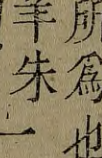 所爲也
羊朱一